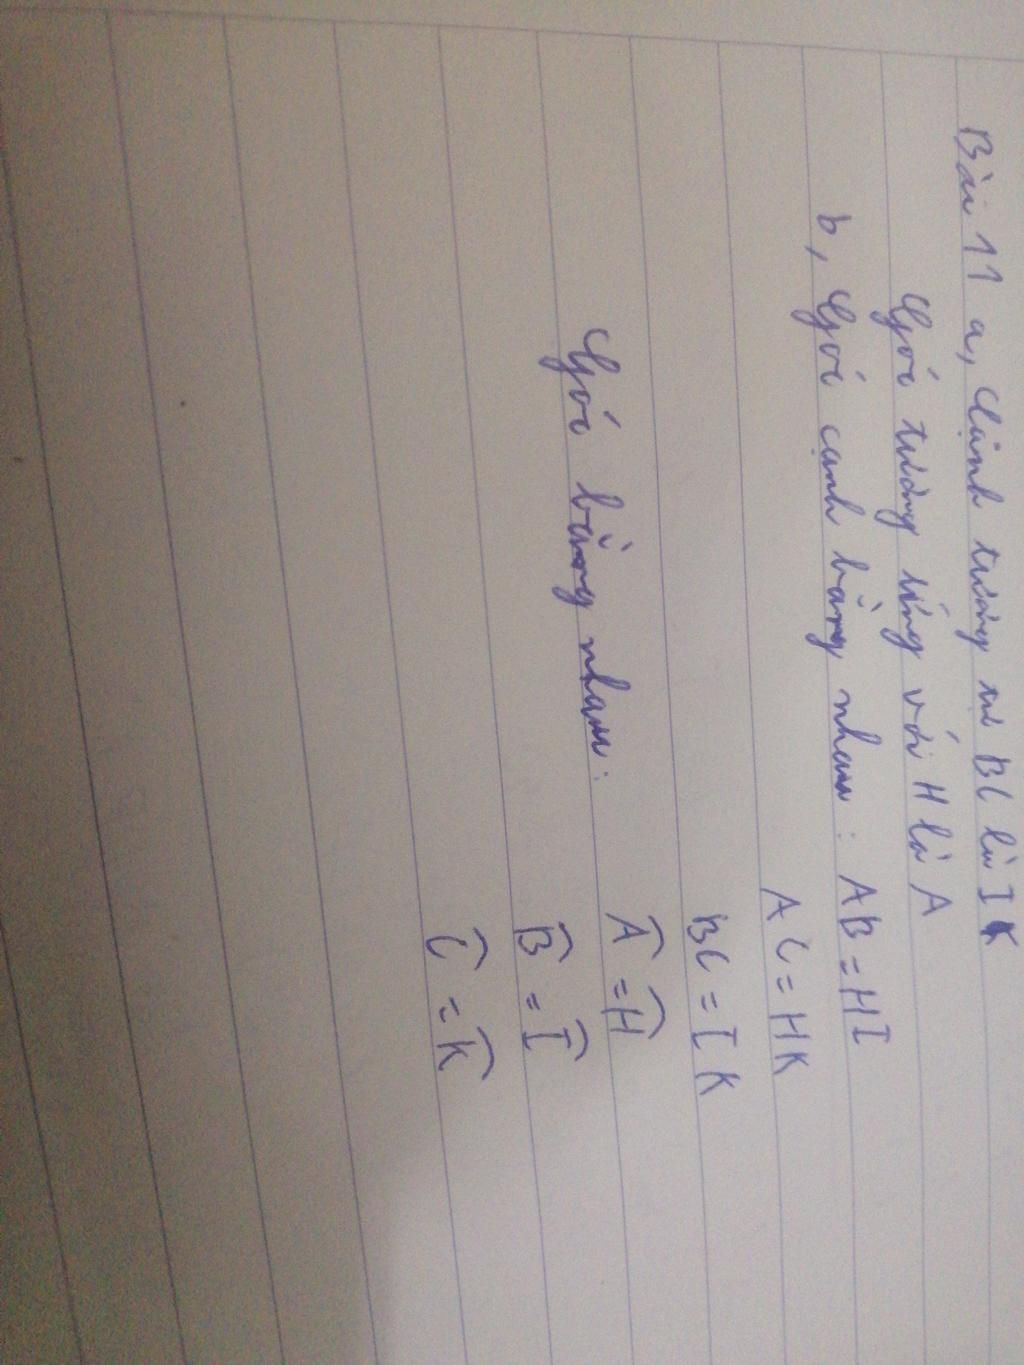 Bài 11 a, Cạnh tương tư BC là IK
Gói tướng ứng với H là A
b, Gói cạnh bằng nhau : AB = HI
AC = HK
BC = IK
Gói bằng nhau : Â = Ĥ
B̂ = Î
Ĉ = K̂